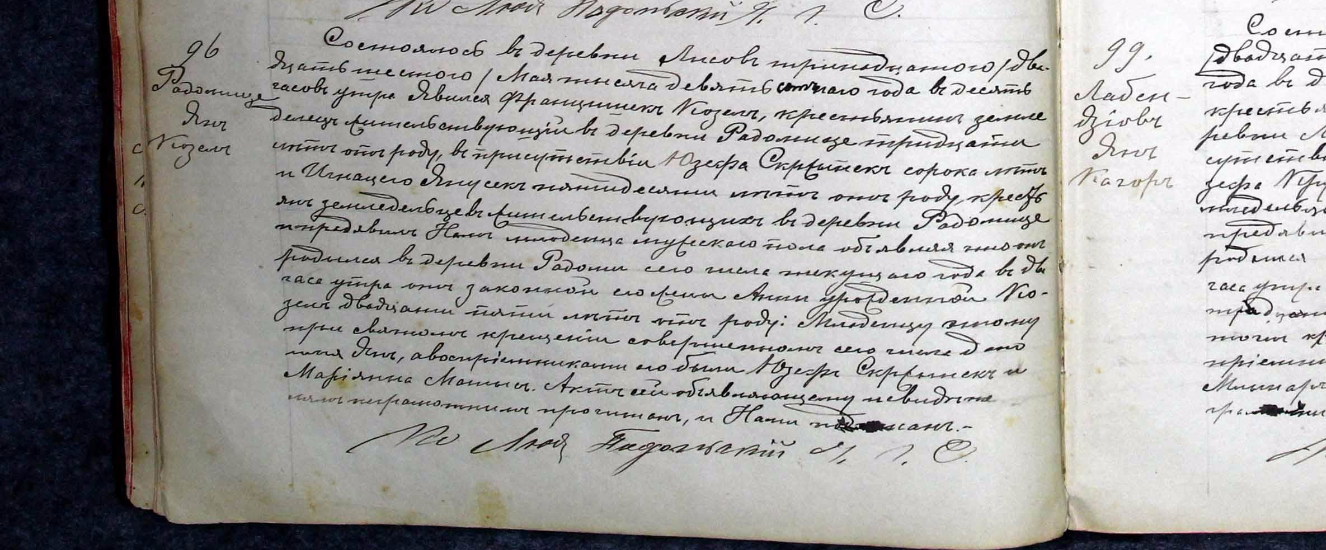 96
Радомице
Янъ
Козелъ
Состоялось въ деревни Лисовъ тринадцатого /два-
дцать шестого/ Мая тысяча девятьсотнаго года въ десять
часовъ утра. Явился Францишекъ Козелъ, крестьянинъ земле
делецъ жительствующій въ деревни Радомице тридцати
лѣтъ отъ роду, въ присутствіи Юзефа Скрынекъ сорока лѣтъ
и Игнацего Янусекъ пятидесяти лѣтъ отъ роду крестьянъ
земледельцевъ жительствующихъ въ деревни Радомице
и предявилъ Намъ младенца мужескаго пола объявляя что онъ
родился въ деревни Радоми сего числа текущаго года въ два
часа утра отъ законной его жены Анны урожденной Ко-
зелъ двадцати пяти лѣтъ отъ роду: Младенцу этому
при святомъ крещеніи совершенномъ сего числа дано
имя Янъ, а воспріемниками его были Юзефъ Скрынекъ и
Маріянна Матыс. Актъ сей объявляющему и свидѣте
лямъ неграмотнымъ прочитанъ, и Нами подписанъ.-
99.
Лабен-
дзіовъ
Янъ
Качоръ
Сост
/двадцат
года въ д
крестья
ревни
сутств
зефа
мледельц
предяви
родился
часа утра
тридцат
этому кр
пріемн
Млинаръ